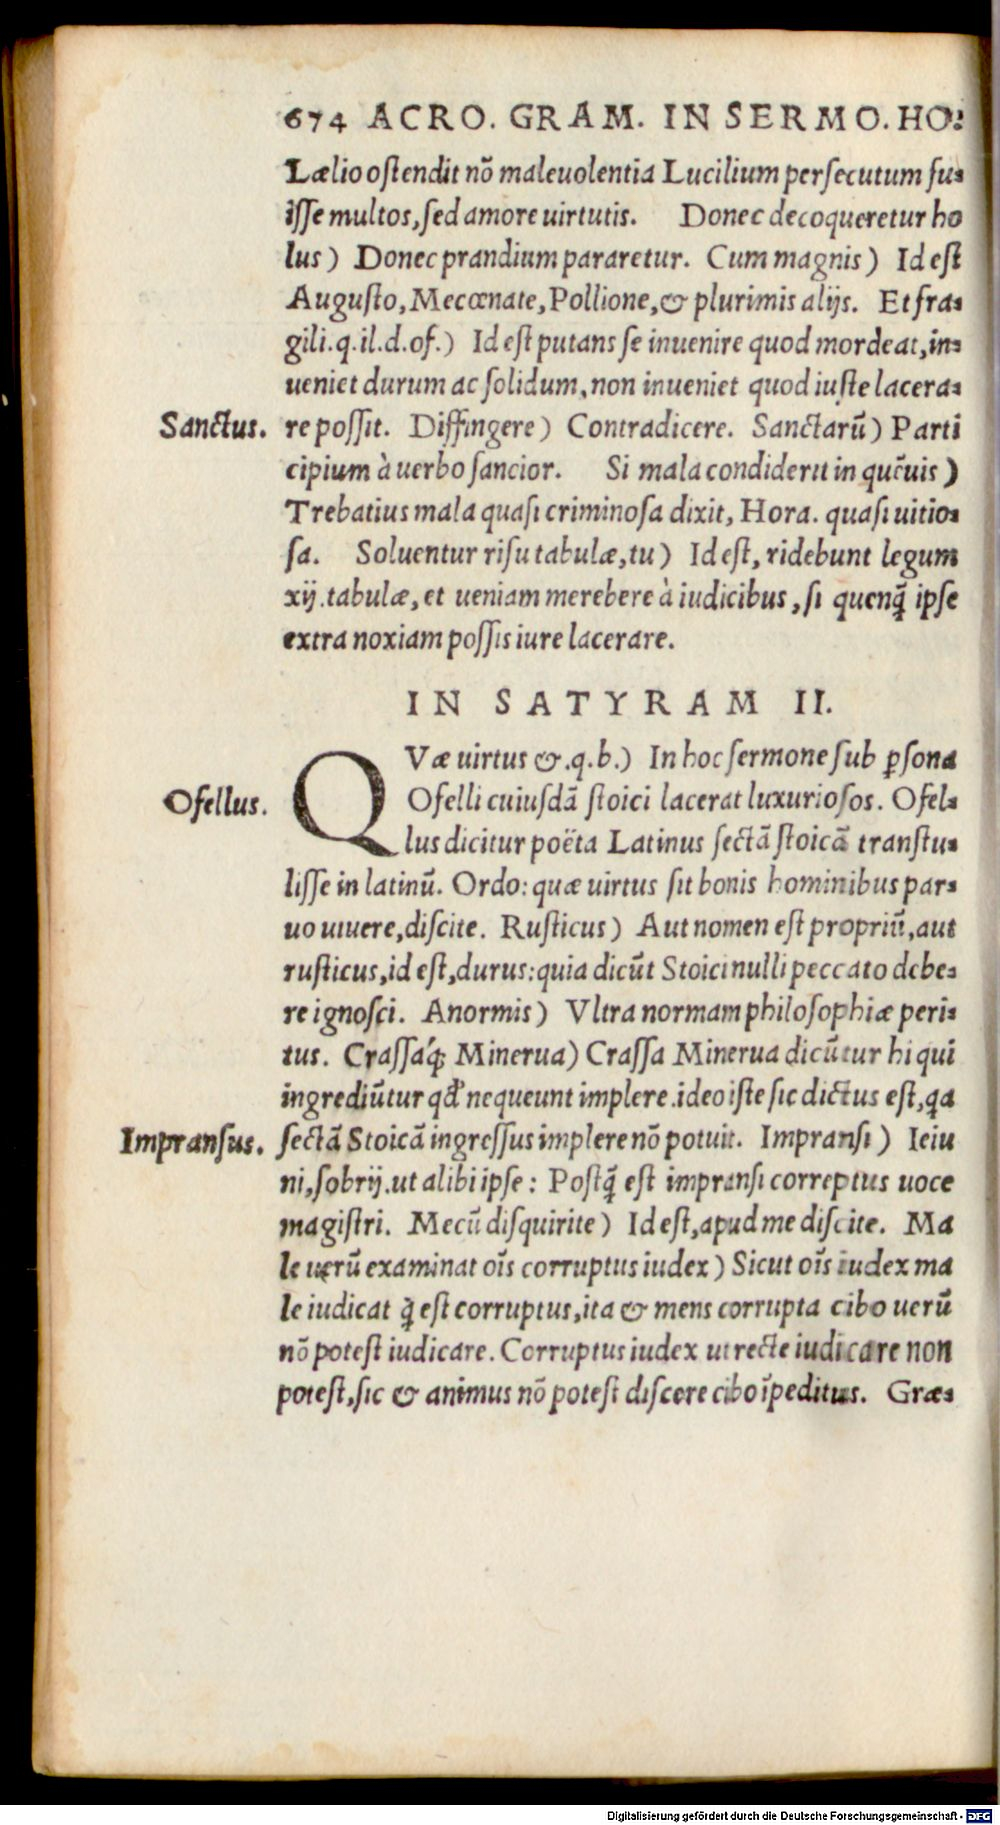 674 ACRO. GRAM. IN SERMO. HO:
Lælio ostendit nō maleuolentia Lucilium persecutum fu-
isse multos, sed amore uirtutis. Donec decoqueretur ho
lus) Donec prandium pararetur. Cum magnis) Id est
Augusto, Mecœnate, Pollione, & plurimis alijs. Et fra-
gili.q.il.d.of.) Id est putans se inuenire quod mordeat, in-
ueniet durum ac solidum, non inueniet quod iuste lacera-
Sanctus. re possit. Diffingere) Contradicere. Sanctarū) Parti
cipium à uerbo sancior. Si mala condiderit in quēuis)
Trebatius mala quasi criminosa dixit, Hora. quasi uitio-
sa. Soluentur risu tabulæ, tu) Id est, ridebunt legum
xij. tabulæ, et ueniam merebere à iudicibus, si quenq̃ ipse
extra noxiam possis iure lacerare.
IN SATYRAM II.
QVæ uirtus &.q.b.) In hoc sermone sub p̱sona
Ofellus. Ofelli cuiusdā stoici lacerat luxuriosos. Ofel-
lus dicitur poëta Latinus sectā stoicā transtu-
lisse in latinū. Ordo: quæ uirtus sit bonis hominibus par-
uo uiuere, discite. Rusticus) Aut nomen est propriū, aut
rusticus, id est, durus: quia dicūt Stoici nulli peccato debe-
re ignosci. Anormis) Vltra normam philosophiæ peri-
tus. Crassaq́; Minerua) Crassa Minerua dicūtur hi qui
ingrediūtur qđ nequeunt implere. ideo iste sic dictus est, q̃a
Impransus. sectā Stoicā ingressus implere nō potuit. Impransi) Ieiu
ni, sobrij. ut alibi ipse: Postq̃ est impransi correptus uoce
magistri. Mecū disquirite) Id est, apud me discite. Ma
le uerū examinat oı̄s corruptus iudex) Sicut oı̄s iudex ma
le iudicat q̃ est corruptus, ita & mens corrupta cibo uerū
nō potest iudicare. Corruptus iudex ut recte iudicare non
potest, sic & animus nō potest discere cibo ı̄peditus. Græ-
Digitalisierung gefördert durch die Deutsche Forschungsgemeinschaft - DFG